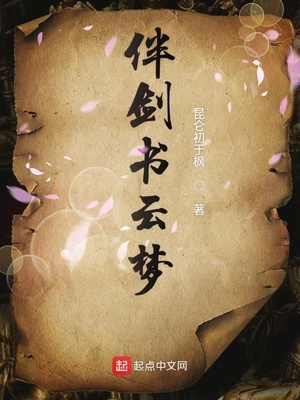 伴剑书云梦
昆仑初于枫 ◎ 著
起 起点中文网